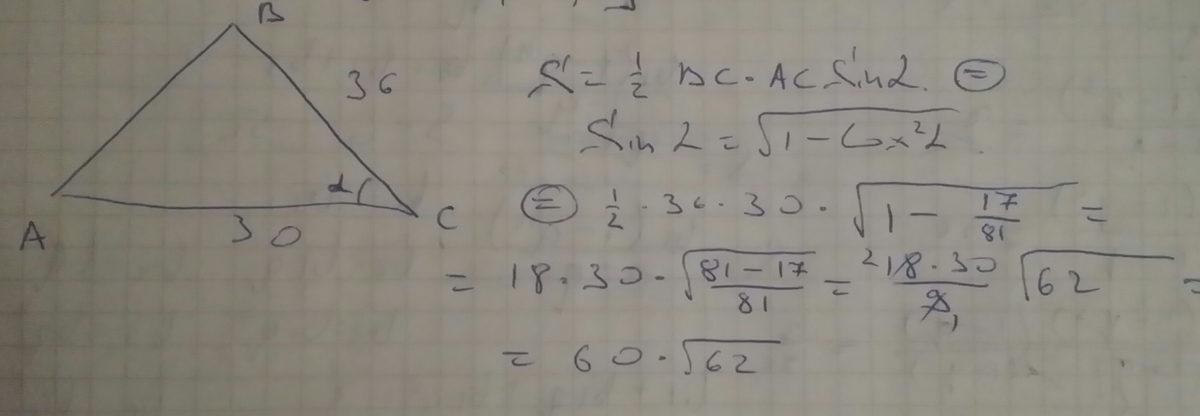 B
36
α
A
30
C
S = 1/2 BC · AC sin α ⊜
sin α = √(1 - cos²α)
⊜ 1/2 · 36 · 30 · √(1 - 17/81) =
= 18 · 30 · √((81 - 17)/81) = ²18 · 30/9₁ √62 =
= 60 · √62